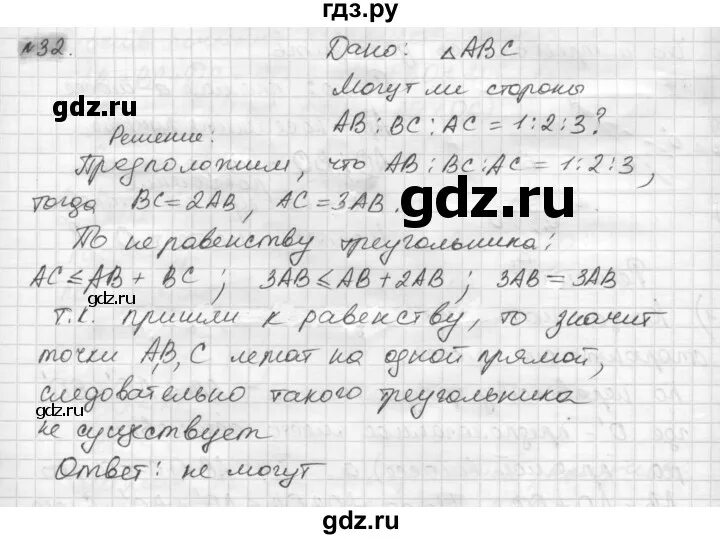 гдз.ру
№32. Дано: △ABC
Могут ли стороны
gdz.ru
AB:BC:AC=1:2:3?
Решение:
Предположим, что AB:BC:AC=1:2:3,
тогда BC=2AB, AC=3AB.
gdz.ru
По неравенству треугольника:
AC≤AB+BC; 3AB≤AB+2AB; 3AB=3AB
gdz.ru
т.к. пришли к равенству, то значит
точки A,B,C лежат на одной прямой,
следовательно такого треугольника
gdz.ru
не существует
Ответ: не могут
gdz.ru
gdz.ru